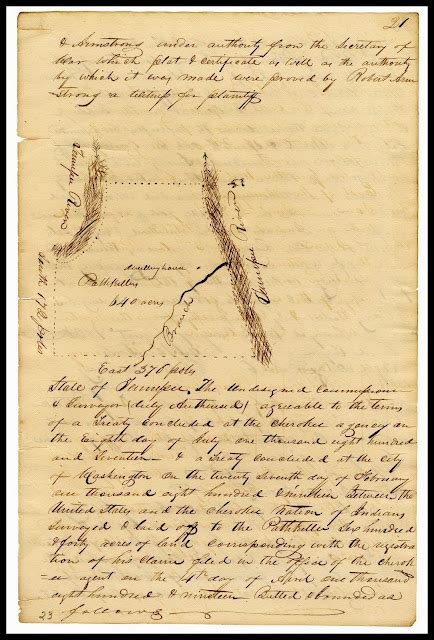 21
& Armstrong under authority from the Secretary of
War which plat & certificate as well as the authority
by which it was made were proved by Robert Arm
strong a witness for plaintiff
Tennessee River
Tennessee River
dwelling house
Pathkillers
640 acres
Branch
South 172 poles
East 370 poles
State of Tennessee. The undersigned Commissioner
& Surveyor (duly Authorised) agreeable to the terms
of a Treaty Concluded at the cherokee agency on
the Eighth day of July one thousand eight hundred
and Seventeen & a Treaty Concluded at the City
of Washington on the twenty Seventh day of February
one thousand eight hundred & nineteen between the
United States and the Cherokee Nation of Indians
Surveyed & laid off to the Pathkiller Six hundred
& forty acres of land corresponding with the registra
tion of his Claim filed in the office of the cherok
ee agent on the 4th day of April one thousand
eight hundred & nineteen Butted & bounded as
23 follows